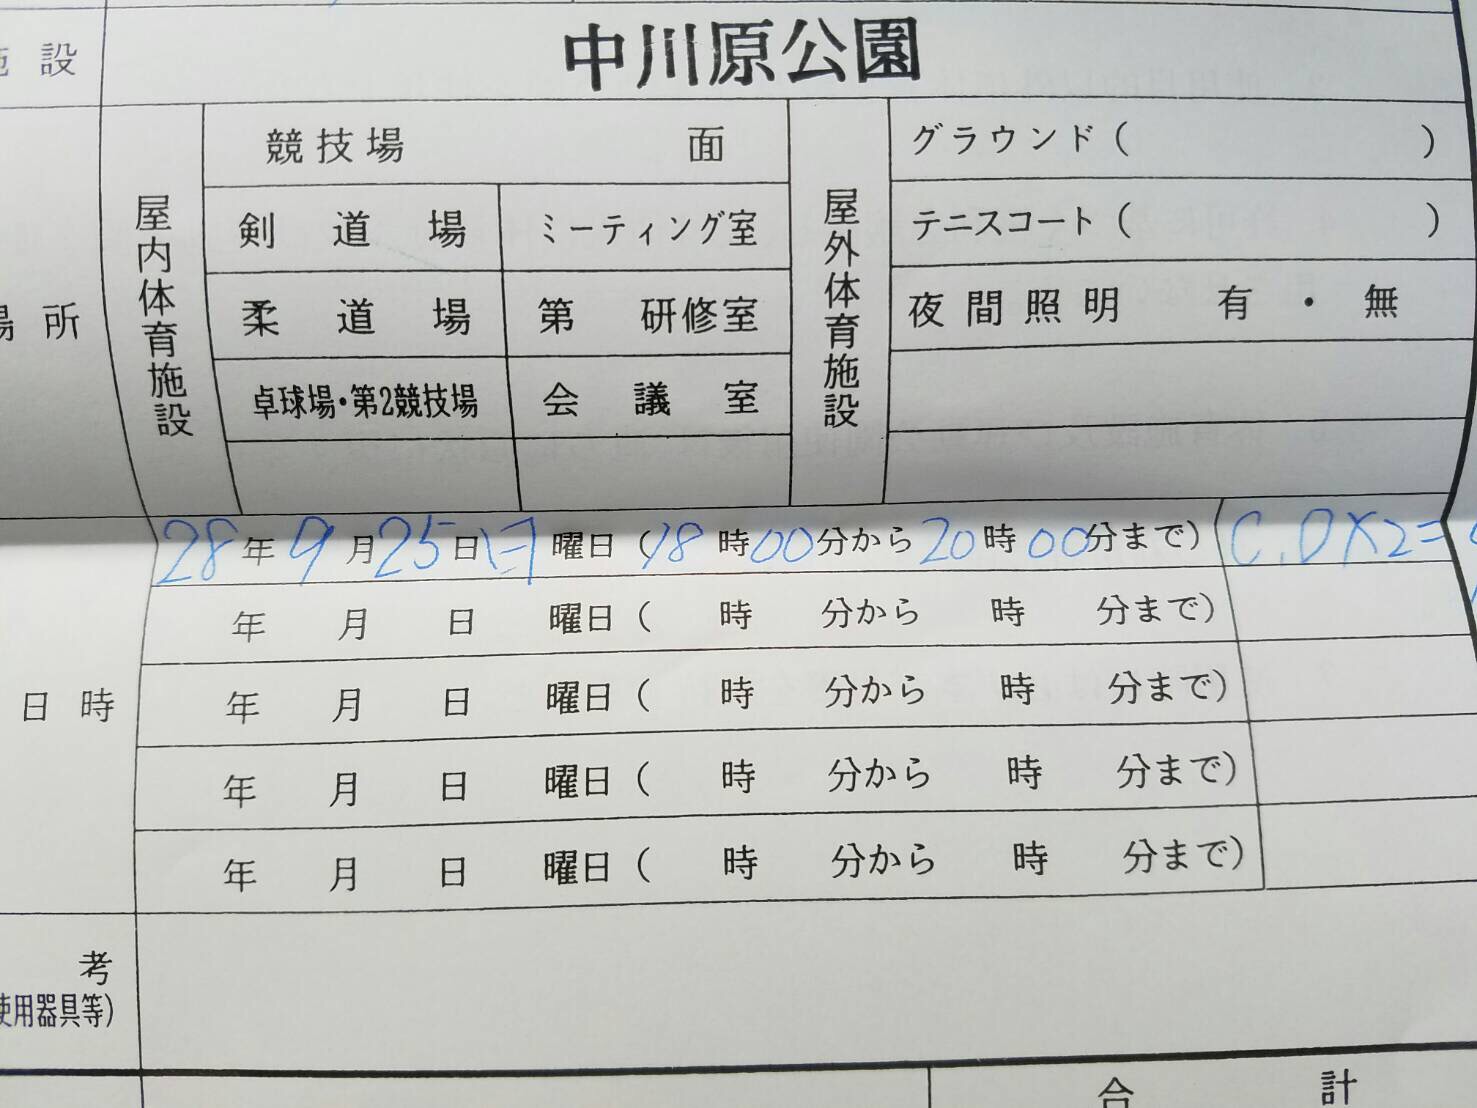 設
中川原公園
所
屋内体育施設
競技場 面
剣道場 ミーティング室
柔道場 第 研修室
卓球場・第2競技場 会議室
屋外体育施設
グラウンド( )
テニスコート( )
夜間照明 有・無
日時
28年9月25日(日曜日(18時00分から20時00分まで) C.D×2=
年 月 日 曜日( 時 分から 時 分まで)
年 月 日 曜日( 時 分から 時 分まで)
年 月 日 曜日( 時 分から 時 分まで)
年 月 日 曜日( 時 分から 時 分まで)
考
使用器具等)
合計